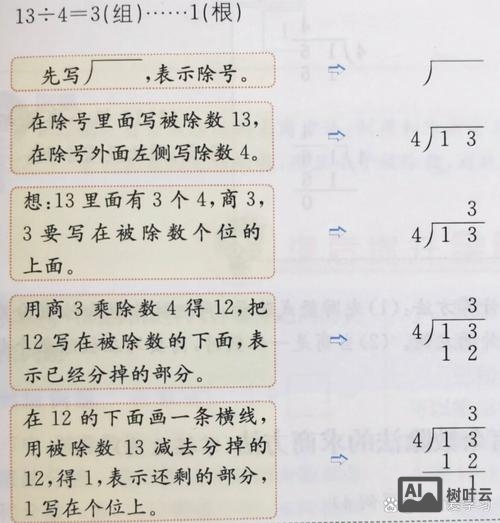 13÷4=3(组)……1(根)
先写厂,表示除号。
在除号里面写被除数13,
在除号外面左侧写除数4.
4 1 3
想:13里面有3个4,商3,
3要写在被除数个位的
上面。
3
4 1 3
用商3乘除数4得12,把
12写在被除数的下面,表
示已经分掉的部分。
3
4 1 3
1 2
在12的下面画一条横线,
用被除数13减去分掉的
12,得1,表示还剩的部分,
1写在个位上。
3
4 1 3
1 2
1
AI 树叶云